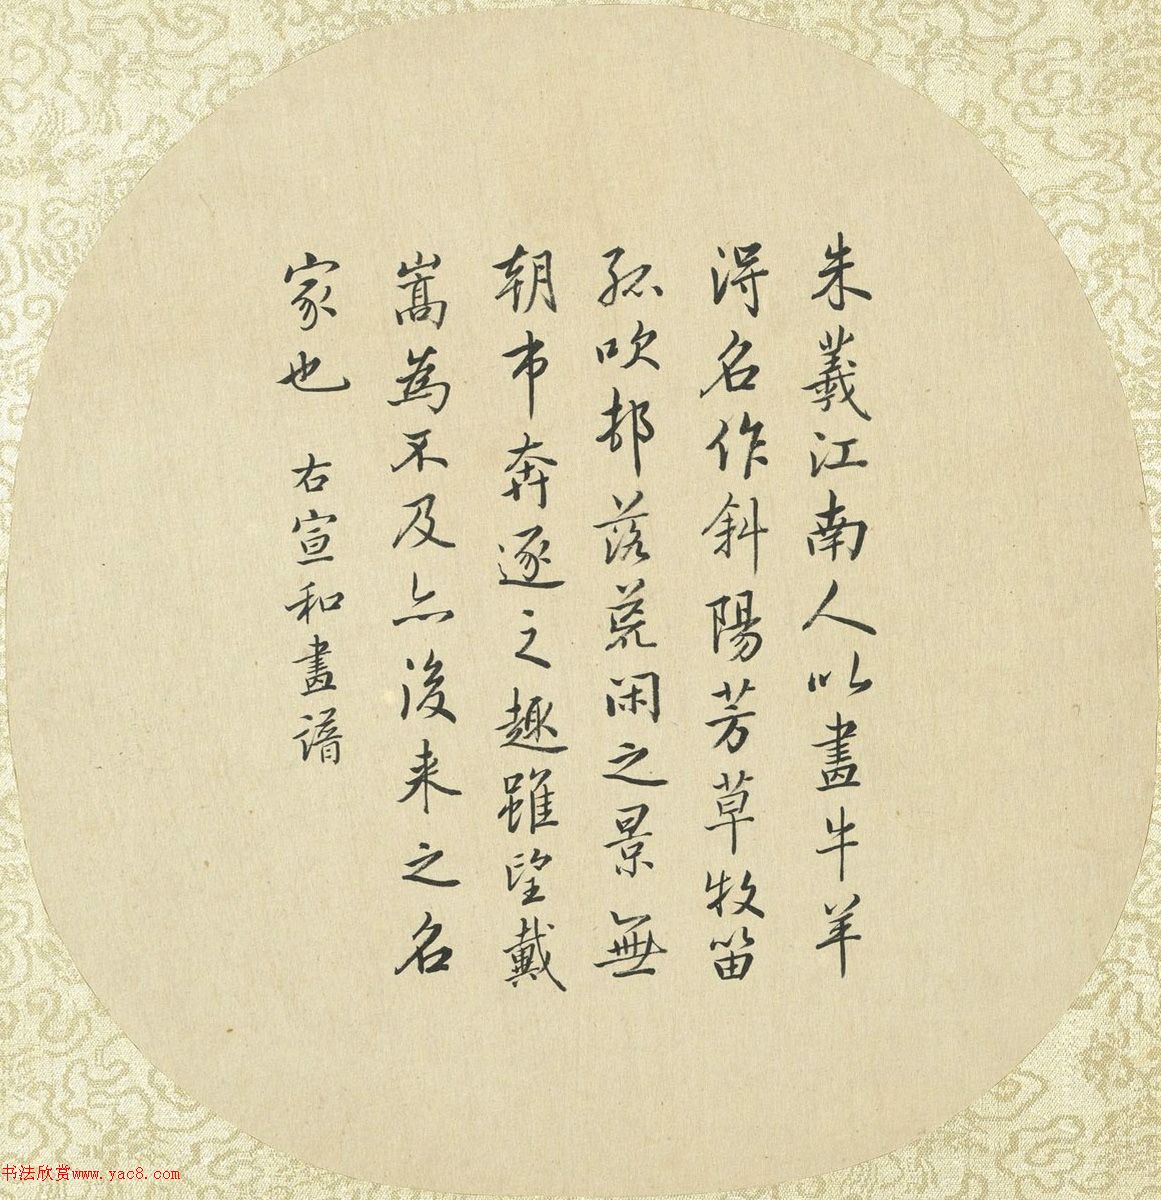 朱羲江南人以畫牛羊
得名作斜陽芳草牧笛
孤吹邨落荒闲之景無
朝市奔逐之趣雖望戴
嵩為不及亦後来之名
家也 右宣和畫譜
书法欣赏www.yac8.com